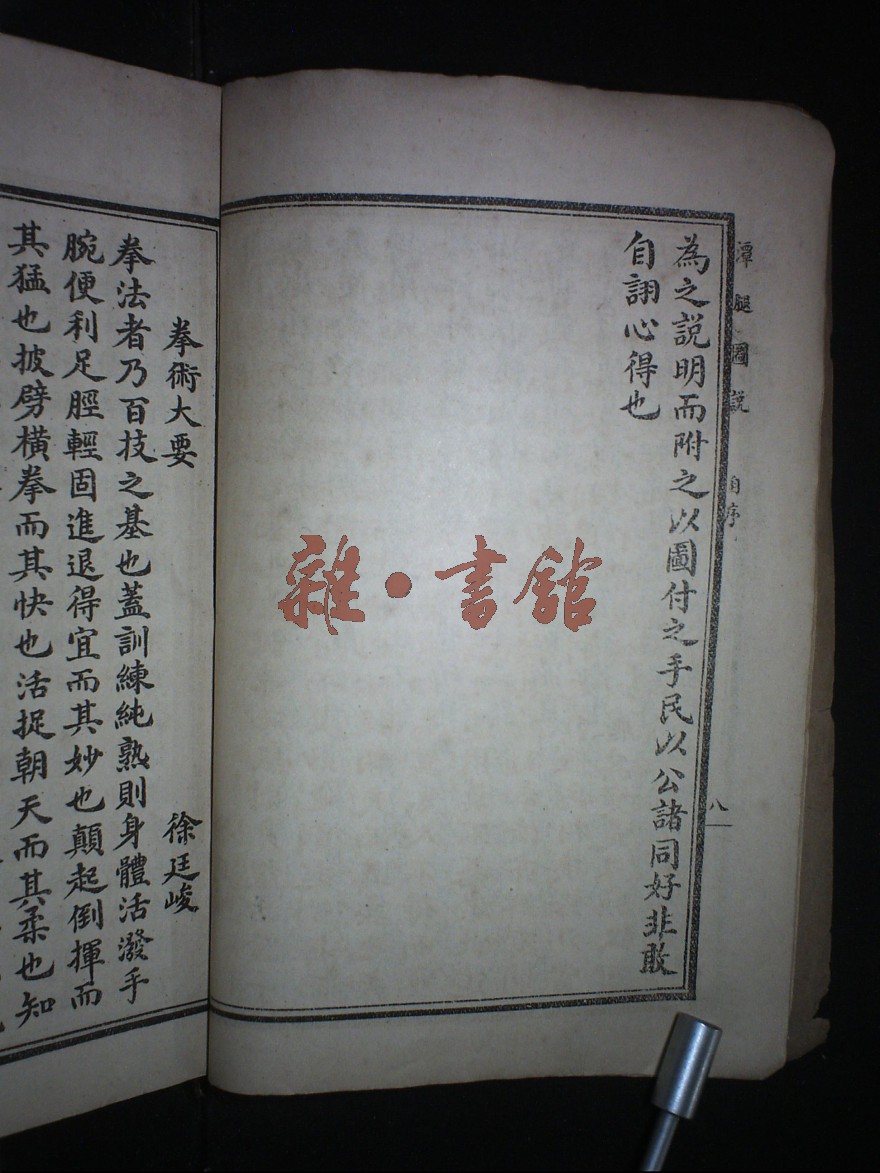 潭腿圖說 自序
八
為之說明而附之以圖付之手民以公諸同好非敢
自詡心得也
拳術大要
徐廷峻
拳法者乃百技之基也蓋訓練純熟則身體活潑手
腕便利足脛輕固進退得宜而其妙也顛起倒揮而
其猛也披劈橫拳而其快也活捉朝天而其柔也知
雜·書館